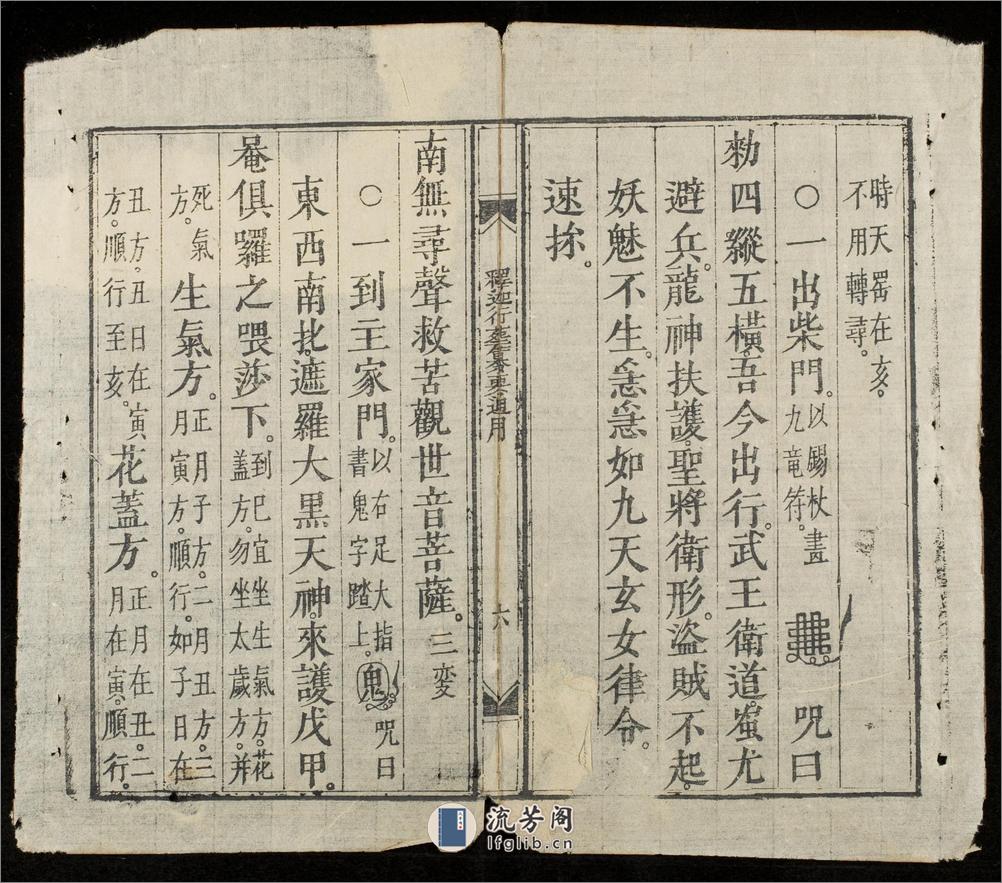 時天罡在亥。
不用轉尋。
○一出柴門。以錫杖畫九竜符。呪曰
勑四縱五橫。吾今出行。武王衛道。蚩尤
避兵。龍神扶護。聖將衛形。盜賊不起。
妖魅不生。急急如九天玄女律令。
速捺。
釋迦行 通用
六
南無尋聲救苦觀世音菩薩。三変
○一到王家門。以右足大指書鬼字踏上。鬼呪曰
東西南北。遮羅大黑天神。來護戊甲。
唵俱囉之喂莎下。到巳宜坐生氣方。花蓋方。勿坐太歲方。并
死氣方。生氣方。正月子方。二月丑方。三月寅方。順行。如子日在
丑方。丑日在寅方。順行至亥。花蓋方。正月在丑。二月在寅。順行。
流芳阁
lfglib.cn